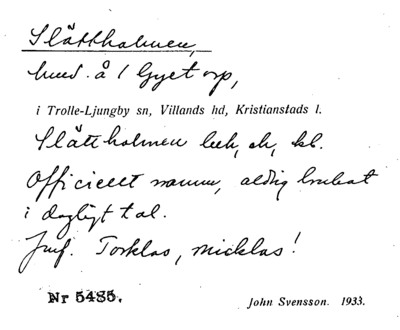 Slättholmen,
hmd. å 1 Gyetorp,
i Trolle-Ljungby sn, Villands hd, Kristianstads l.
Slättholmen
Officiellt namn, aldrig brukat
i dagligt tal.
Jmf. Torklas, Micklas!
Nr 5485. John Svensson. 1933.